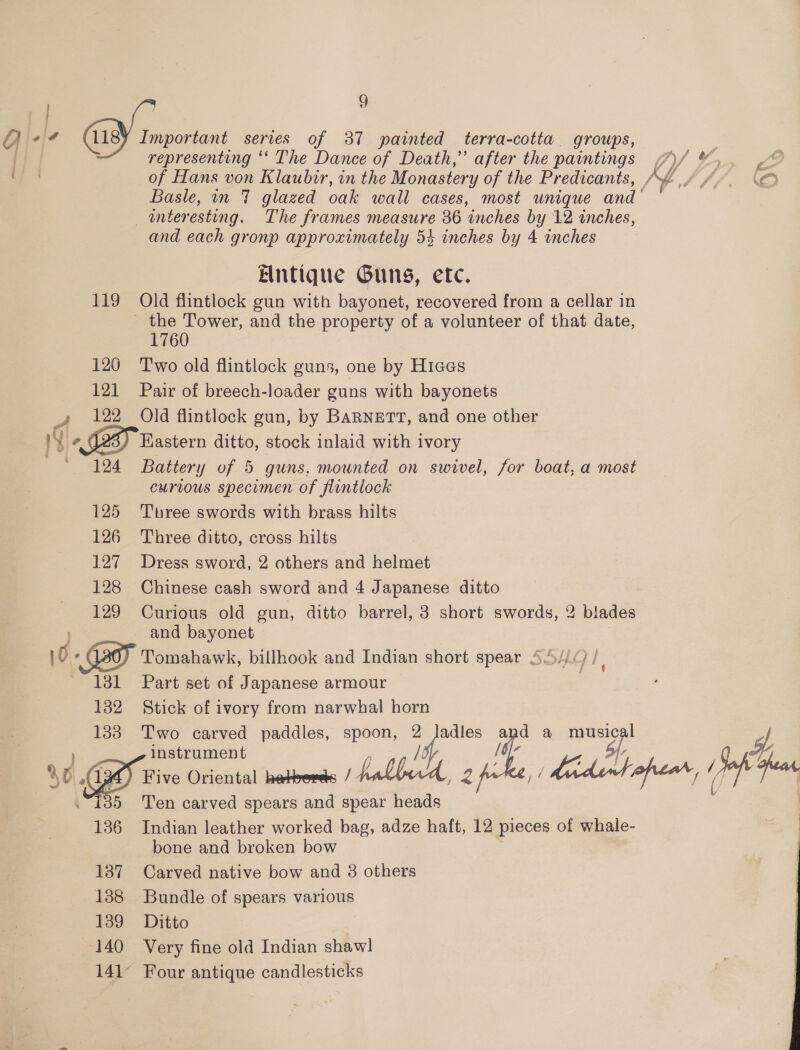 9
118 Important series of 37 painted terra-cotta groups,
representing “ The Dance of Death,” after the paintings
of Hans von Klaubir, in the Monastery of the Predicants,
Basle, in 7 glazed oak wall cases, most unique and
interesting. The frames measure 36 inches by 12 inches,
and each gronp approximately 5½ inches by 4 inches
Antique Guns, etc.
119 Old flintlock gun with bayonet, recovered from a cellar in
the Tower, and the property of a volunteer of that date,
1760
120 Two old flintlock guns, one by HIGGS
121 Pair of breech-loader guns with bayonets
122 Old flintlock gun, by BARNETT, and one other
123 Eastern ditto, stock inlaid with ivory
124 Battery of 5 guns, mounted on swivel, for boat, a most
curious specimen of flintlock
125 Three swords with brass hilts
126 Three ditto, cross hilts
127 Dress sword, 2 others and helmet
128 Chinese cash sword and 4 Japanese ditto
129 Curious old gun, ditto barrel, 3 short swords, 2 blades
and bayonet
10 · 130 Tomahawk, billhook and Indian short spear
131 Part set of Japanese armour
132 Stick of ivory from narwhal horn
133 Two carved paddles, spoon, 2 ladles and a musical
instrument
134 Five Oriental halberds 1 halberd, 2 pike, 1 trident spear, 1 Jap spear
135 Ten carved spears and spear heads
136 Indian leather worked bag, adze haft, 12 pieces of whale-
bone and broken bow
137 Carved native bow and 3 others
138 Bundle of spears various
139 Ditto
140 Very fine old Indian shawl
141 Four antique candlesticks